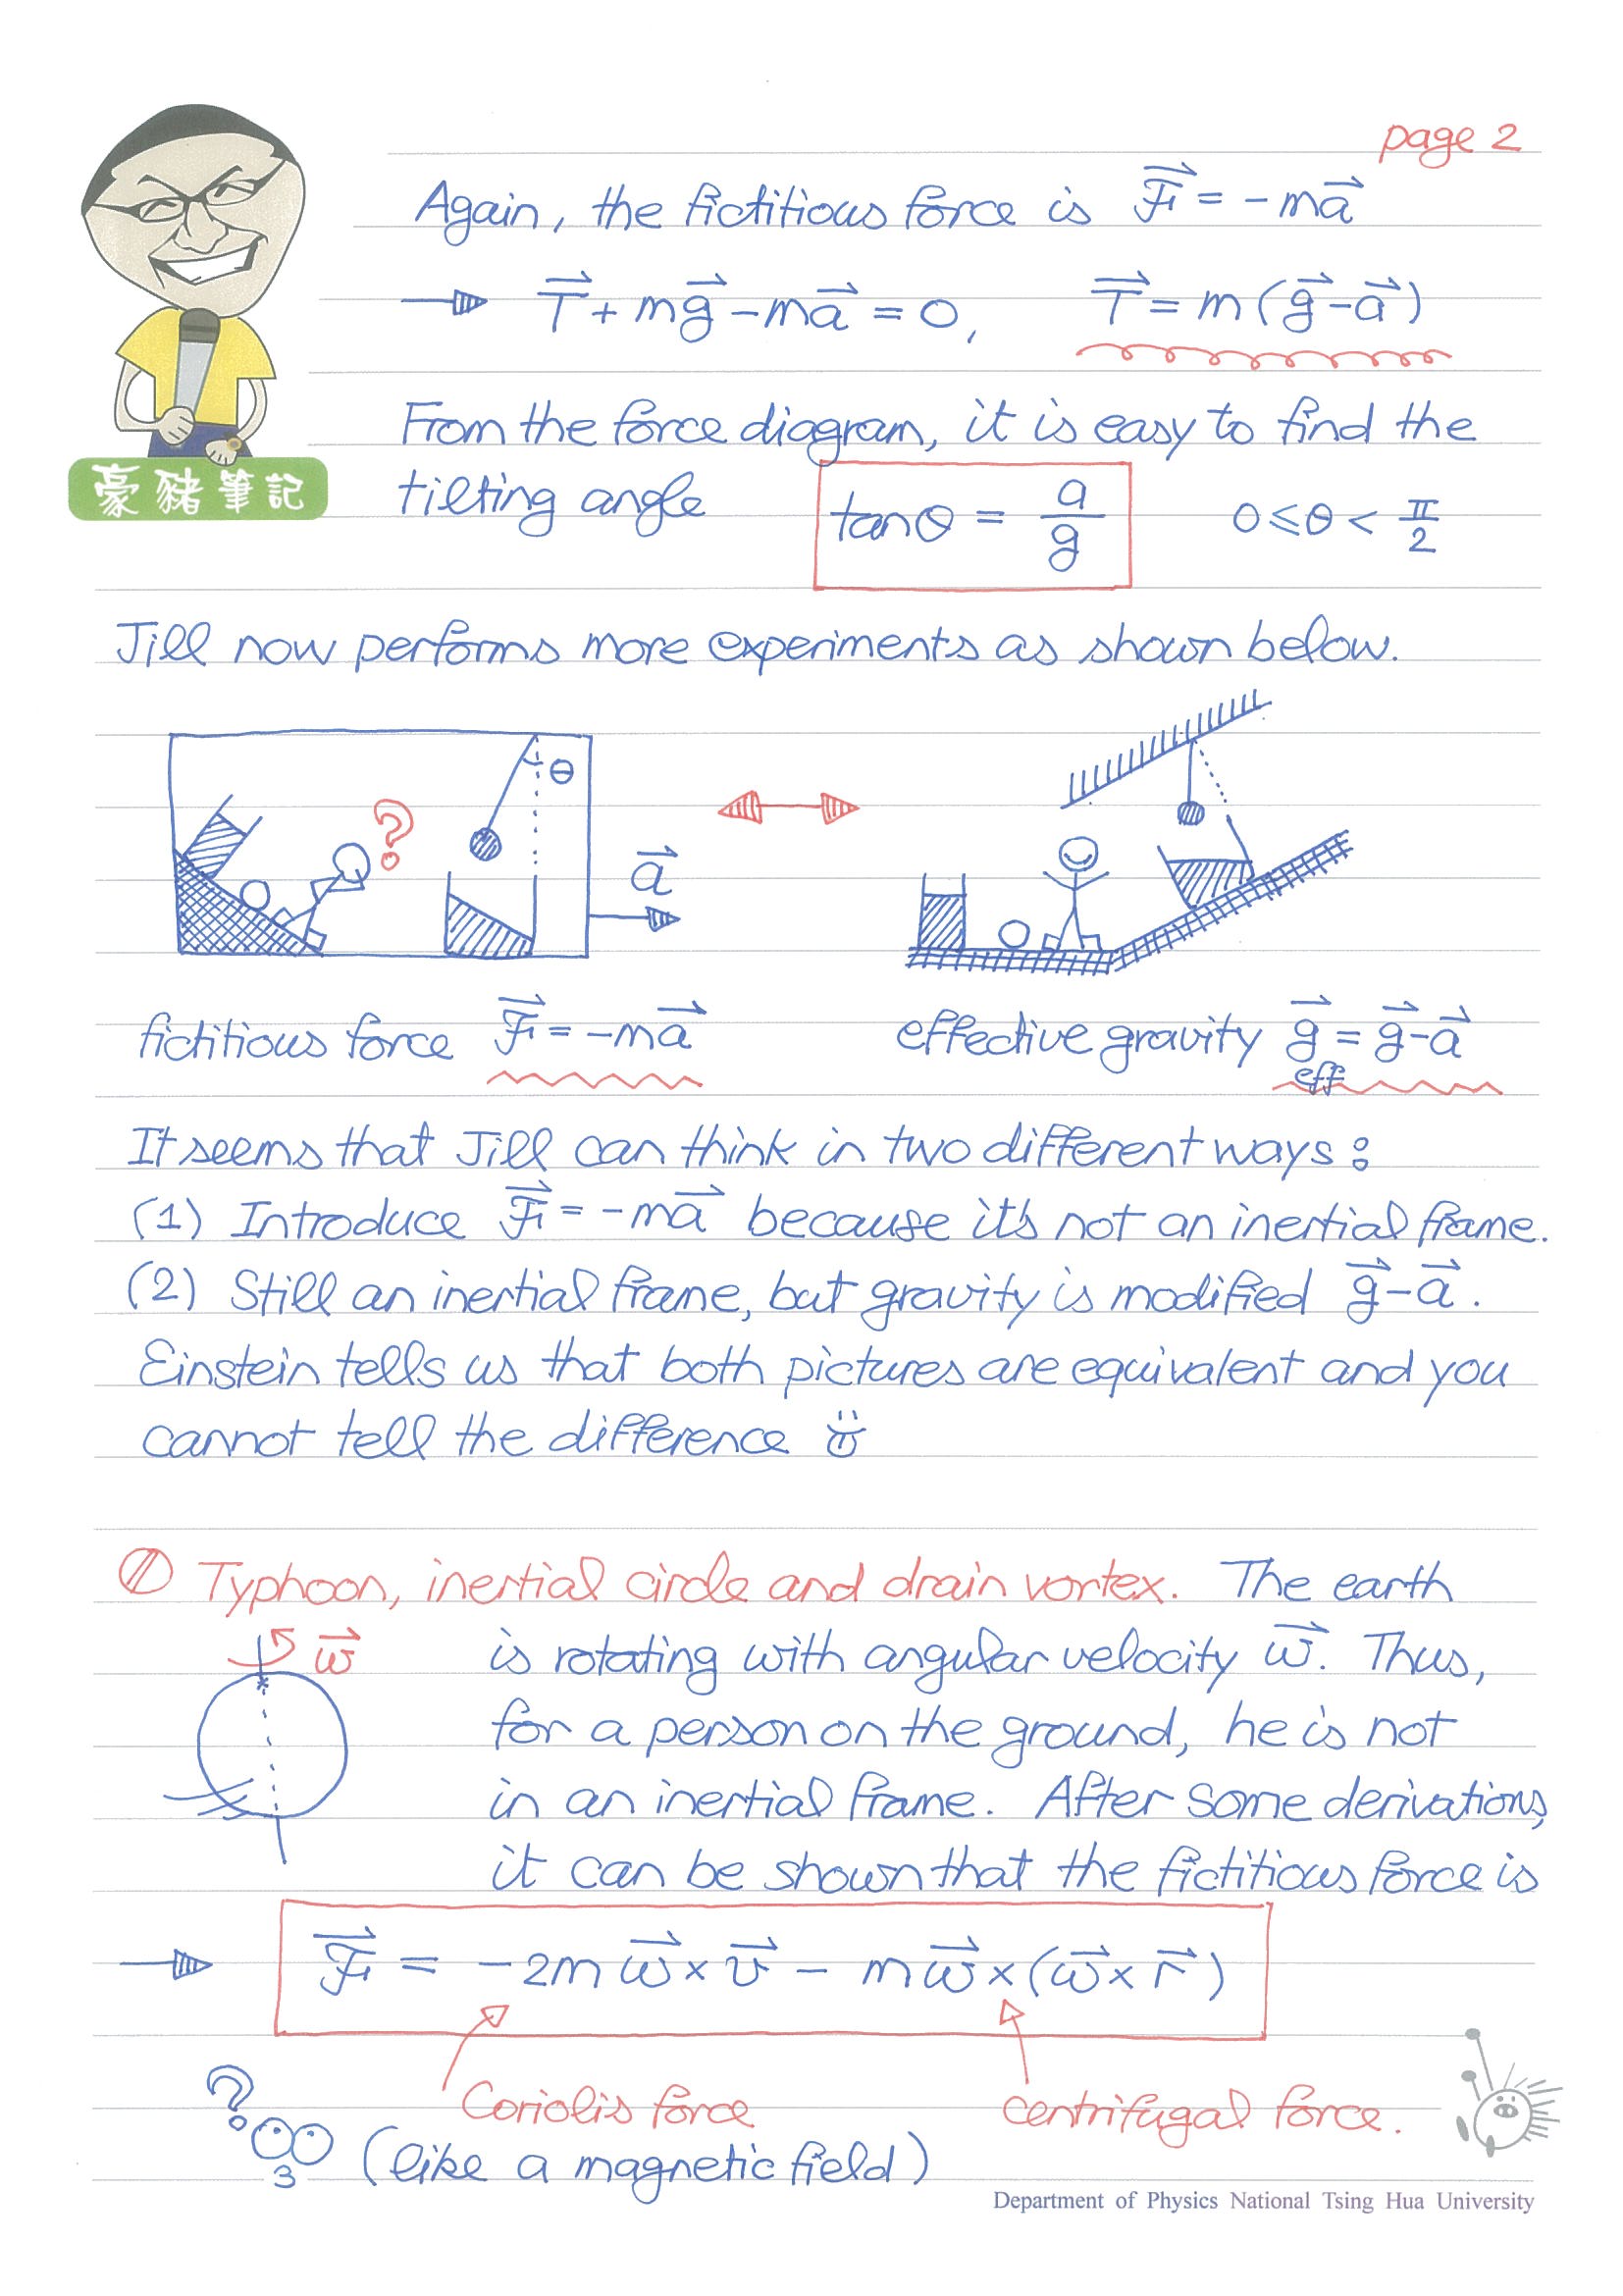 page 2
Again, the fictitious force is $\vec{\mathcal{F}} = -m\vec{a}$
→ $\vec{T} + m\vec{g} - m\vec{a} = 0$, $\vec{T} = m(\vec{g} - \vec{a})$
From the force diagram, it is easy to find the
豪豬筆記
tilting angle $\tan\theta = \frac{a}{g}$ $0 \leq \theta < \frac{\pi}{2}$
Jill now performs more experiments as shown below.
θ
?
$\vec{a}$
fictitious force $\vec{\mathcal{F}} = -m\vec{a}$ effective gravity $\vec{g}_{eff} = \vec{g} - \vec{a}$
It seems that Jill can think in two different ways:
(1) Introduce $\vec{\mathcal{F}} = -m\vec{a}$ because it's not an inertial frame.
(2) Still an inertial frame, but gravity is modified $\vec{g} - \vec{a}$.
Einstein tells us that both pictures are equivalent and you
cannot tell the difference
Typhoon, inertial circle and drain vortex. The earth
$\vec{\omega}$
is rotating with angular velocity $\vec{\omega}$. Thus,
for a person on the ground, he is not
in an inertial frame. After some derivations,
it can be shown that the fictitious force is
→ $\vec{\mathcal{F}} = -2m\vec{\omega} \times \vec{v} - m\vec{\omega} \times (\vec{\omega} \times \vec{r})$
?
Coriolis force centrifugal force.
(like a magnetic field)
Department of Physics National Tsing Hua University